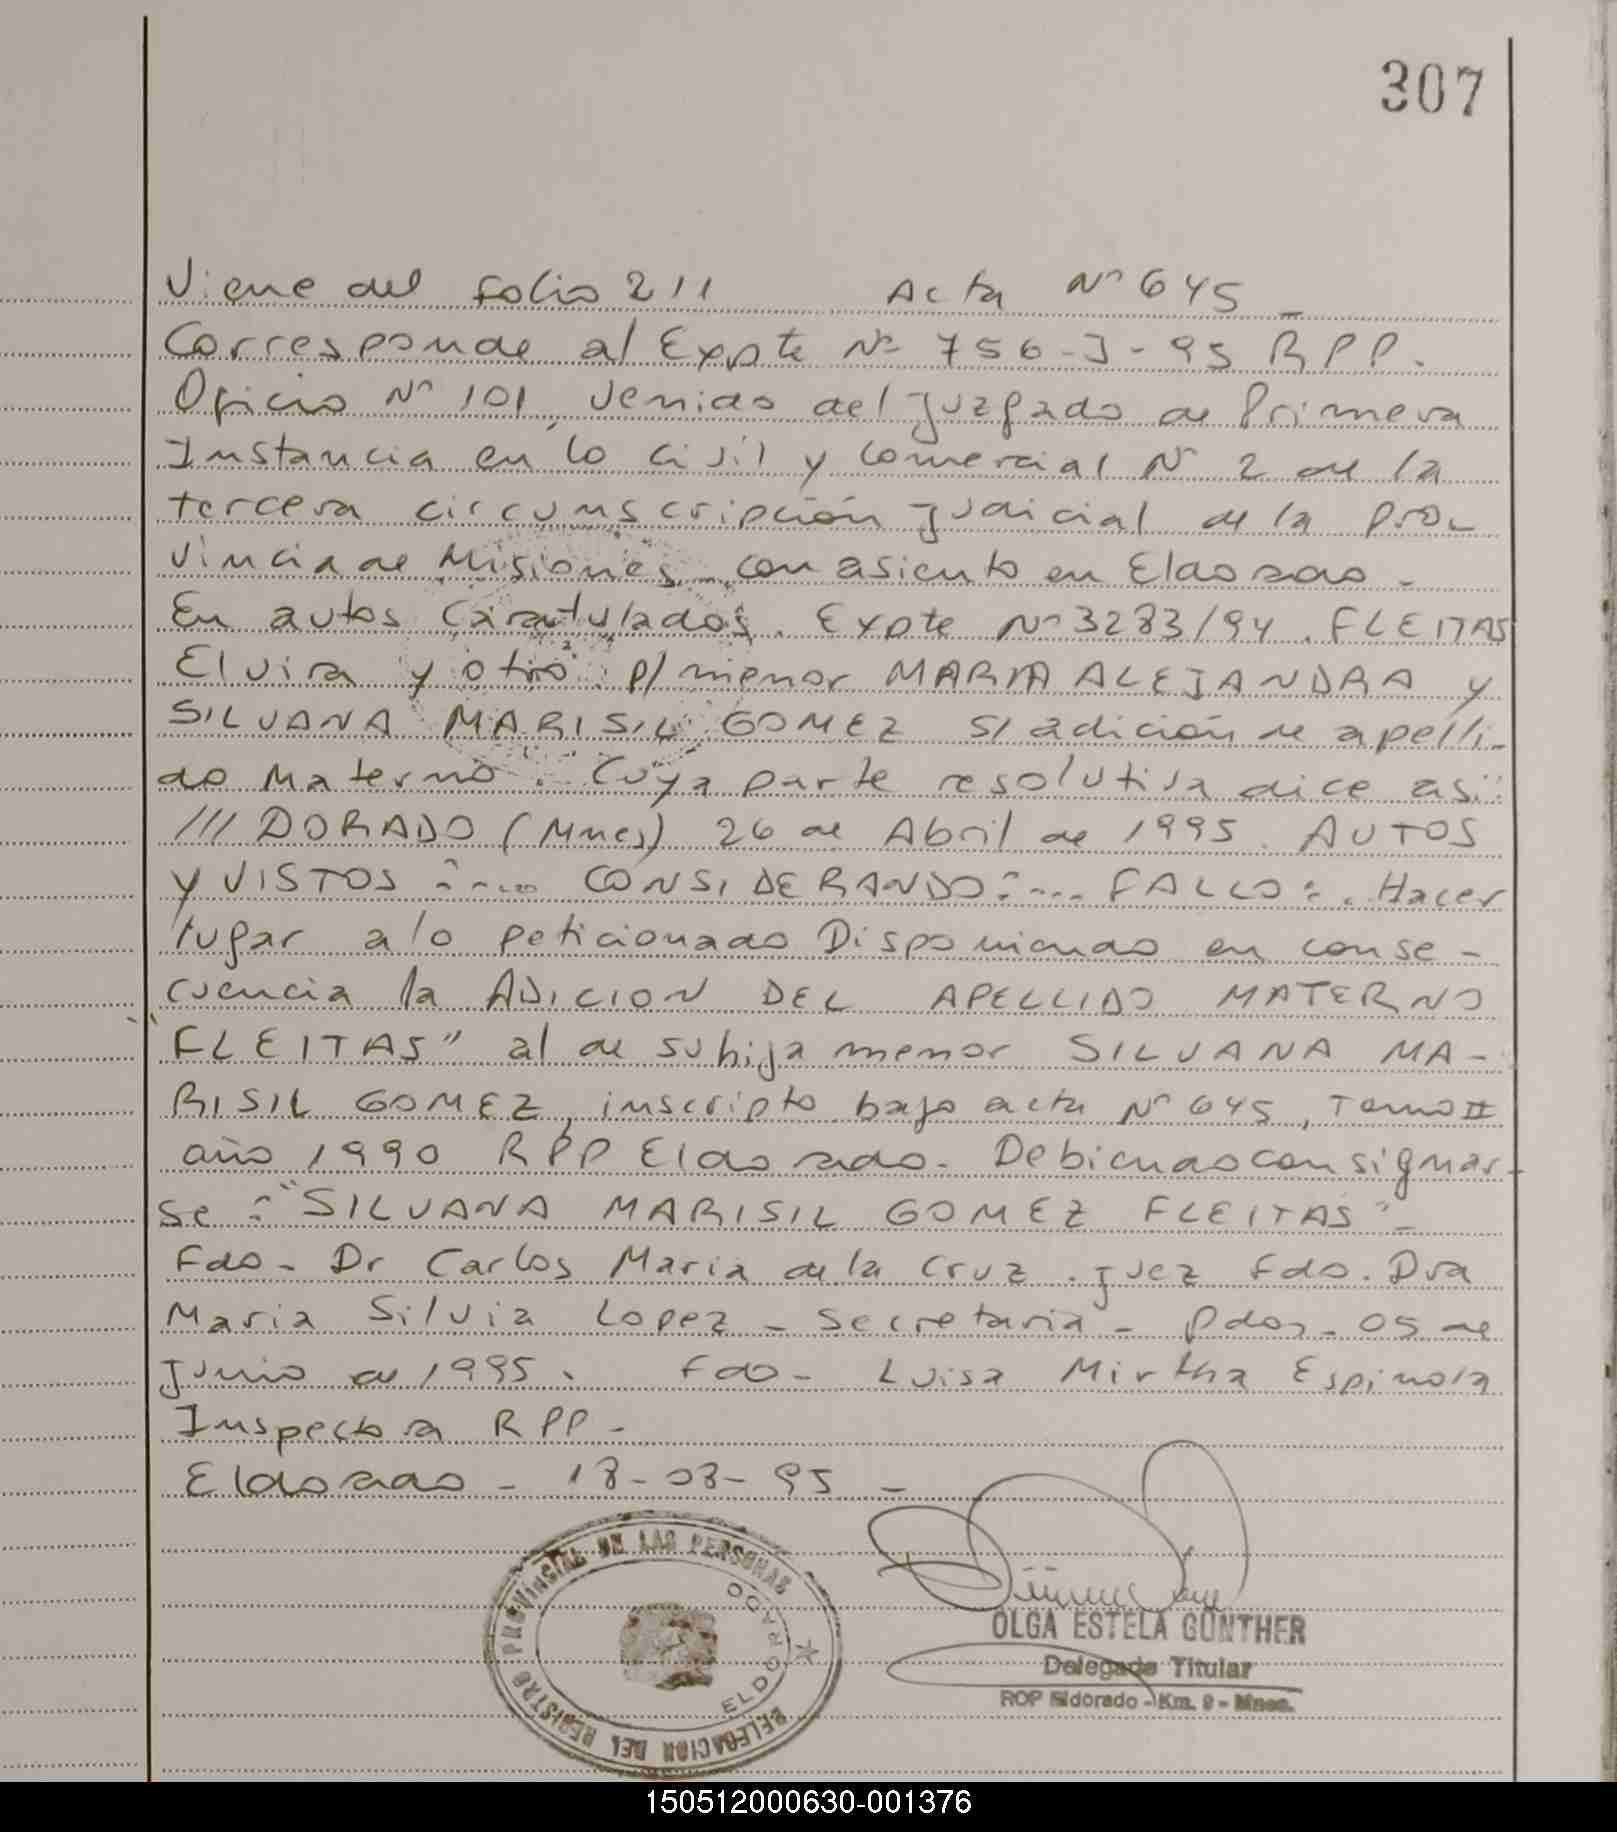 307
Viene del folio 211 Acta Nº 645 _
Corresponde al Expte Nº 756-J-95 RPP.
Oficio Nº 101, venido del Juzgado de Primera
Instancia en lo Civil y Comercial Nº 2 de la
tercera circunscripción Judicial de la Pro-
vincia de Misiones, con asiento en Eldorado -
En autos Caratulados. Expte Nº 3283/94. FLEITAS
Elvira y otro p/ menor MARIA ALEJANDRA y
SILVANA MARISIL GOMEZ S/ adición de apelli-
do Materno. Cuya parte resolutiva dice así:
///DORADO (Mnes) 26 de Abril de 1995. AUTOS
y VISTOS:.... CONSIDERANDO:... FALLO:. Hacer
lugar a lo peticionado Disponiendo en conse-
cuencia la ADICION DEL APELLIDO MATERNO
"FLEITAS" al de su hija menor SILVANA MA-
RISIL GOMEZ, inscripto bajo acta Nº 645, Tomo II
año 1990 RPP Eldorado. Debiendo consignar-
se: "SILVANA MARISIL GOMEZ FLEITAS"-
Fdo- Dr Carlos Maria de la Cruz. Juez Fdo. Dra
Maria Silvia Lopez - Secretaria - Pdas. 05 de
Junio de 1995. Fdo- Luisa Mirtha Espinola
Inspectora RPP-
Eldorado - 18-08-95 -
DELEGACION DEL REGISTRO PROVINCIAL DE LAS PERSONAS
ELDORADO
OLGA ESTELA GÜNTHER
Delegada Titular
ROP Eldorado - Km. 9 - Mnes.
150512000630-001376